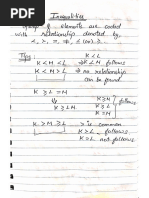 Inequalities
Group of elements are coded
with relationship denoted by,
<, >, =, ≠, ≤ (or) ≥.
Tip: K < L
K < M < L ⇒ K < M follows
K < M > L ⇒ no relationship
can be found
K ≥ L = M
K ≥ M
K > M
K = M
follows
K > M ≥ L ⇒ > is common
K > L follows
K = L not follows